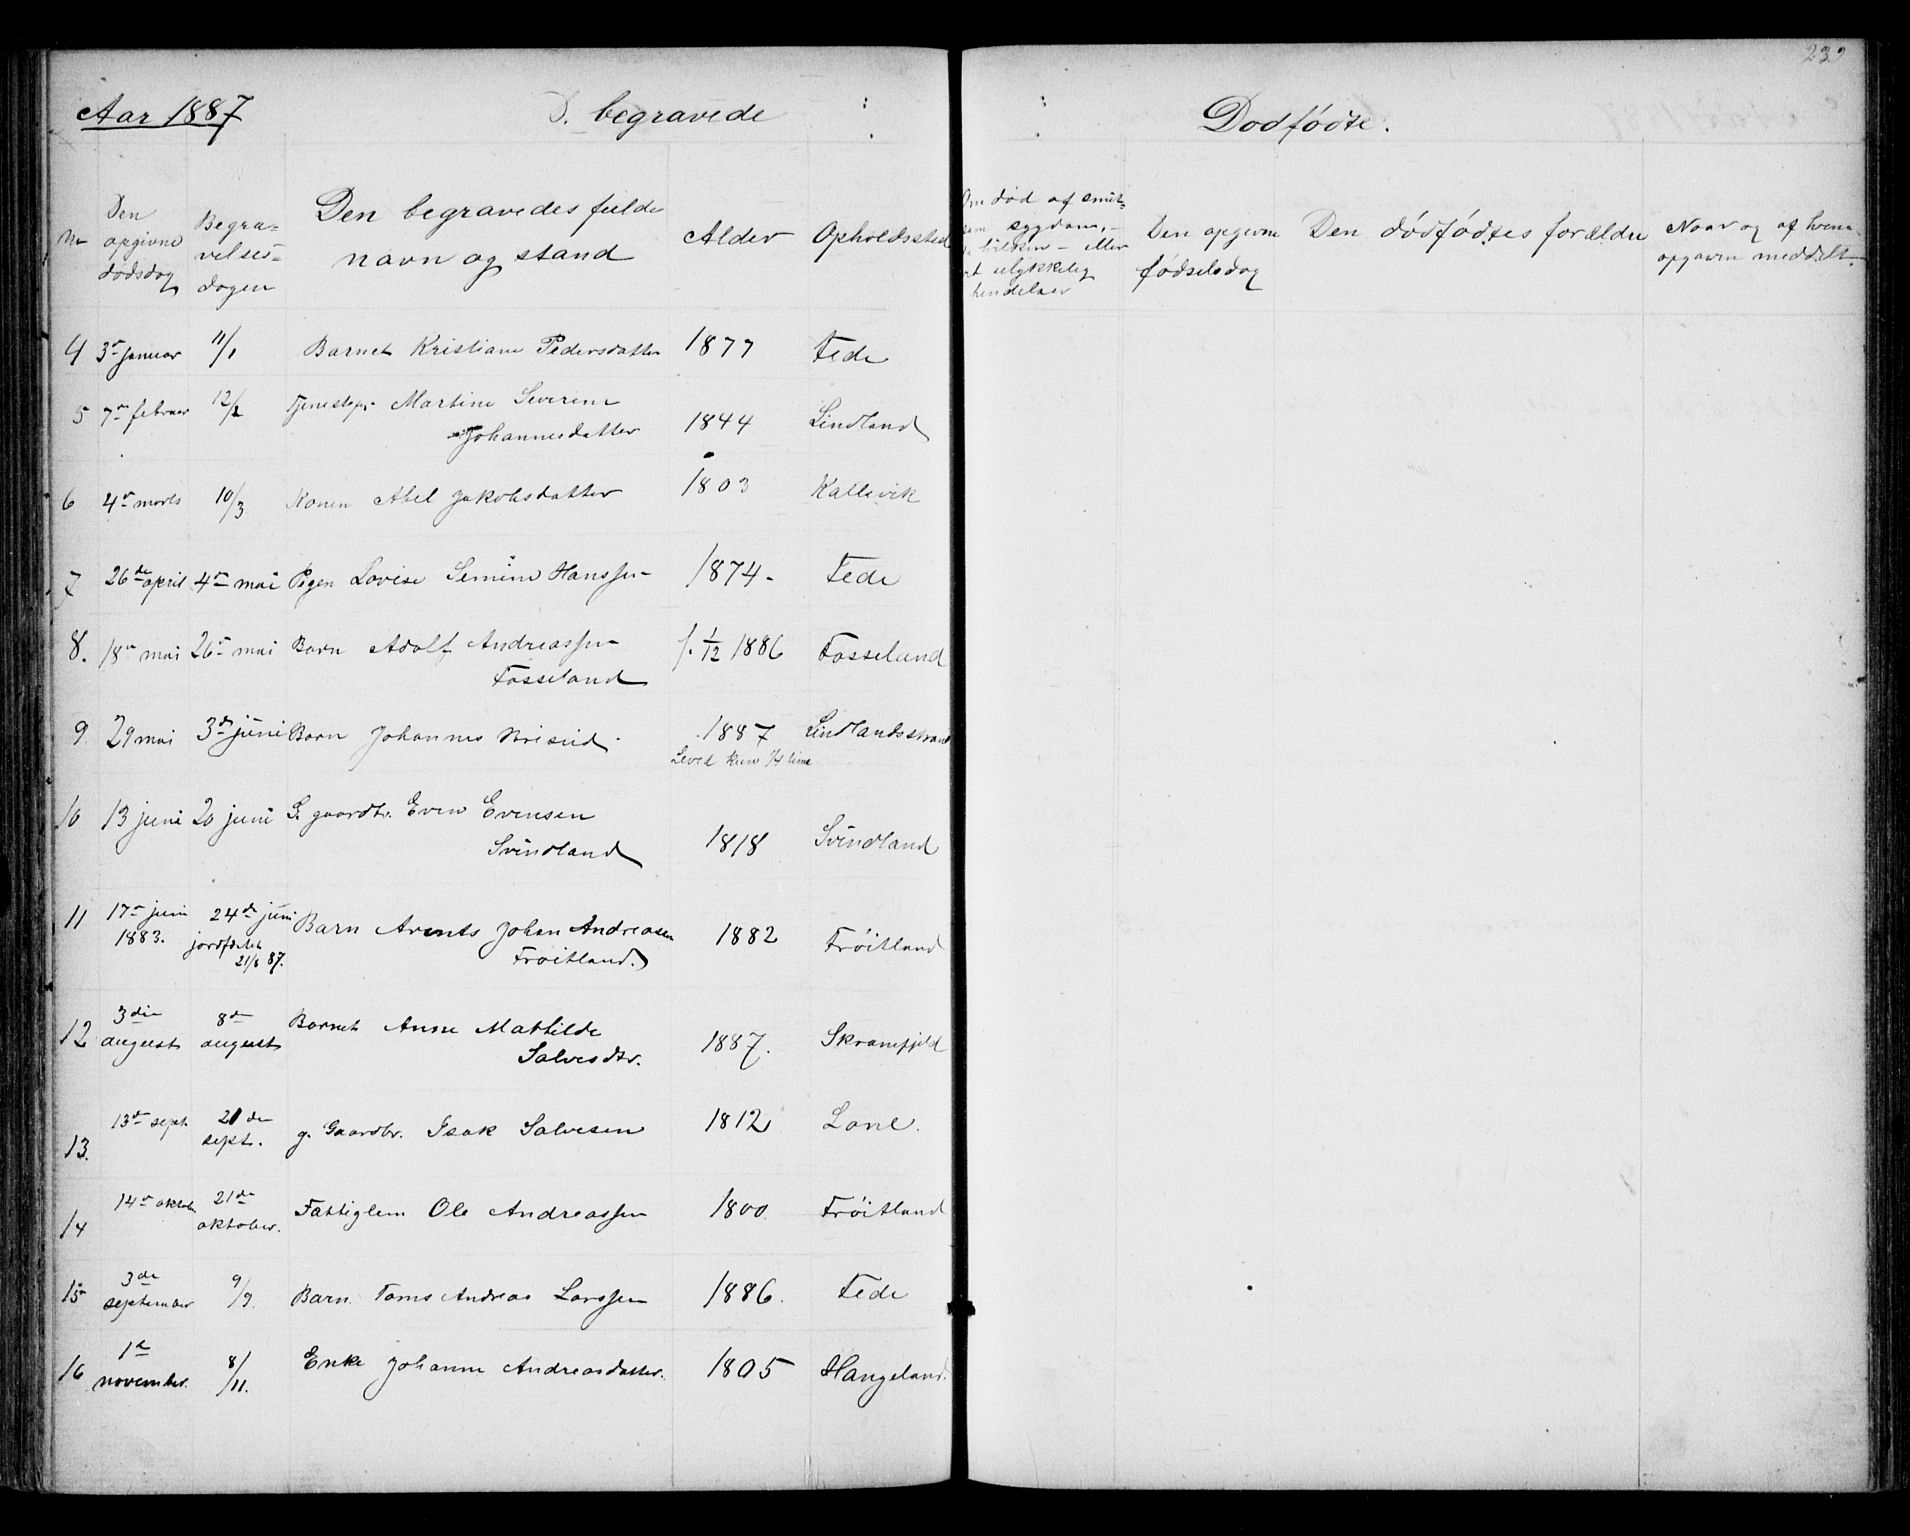 Aar 1887 D. begravede
No Den opgivne dødsdag Begravelsesdagen Den begravedes fulde navn og stand Alder Opholdssted
4 3die januar 11/1 Barnet Kristiane Pedersdatter 1877 Fede
5 7de februar 12/2 Tjenestepi. Martine Severine
Johannesdatter 1844 Lindland
6 4de marts 10/3 Konen Abel Jakobsdatter 1803 Kallevik
7 26de april 4de mai Pigen Lovise Semine Hanssen 1874 - Fede
8. 18de mai 26de mai Barn Adolf Andreassen f. 1/12 1886 Fosseland
Fosseland
9. 29 mai 3die juni Barn Johannes 1887 Lindlandsstrand
Leved kun 1/4 time
10 13 juni 20 juni G. gaardbr. Even Evensen
Svindland 1818 Svindland
11 17de juni 24de juni Barn Arents Johan Andreasen 1882 Frøitland
1883. jordfæstet Frøitland.
21/8 87.
12 3die august 8de august Barnet Anne Mathilde
Salvesdtr. 1887. Skranefjeld
13. 13de sept. 21de sept. g. Gaardbr. Isak Salvesen 1812 Lone.
14 14de oktober 21de oktober. Fattiglem Ole Andreassen 1800. Frøitland
15 3die september 9/9. Barn. Toms Andreas Larssen 1886. Fede
16 1ste november. 8/11. Enke Johanne Andreasdatter. 1805 Hangeland.
239
Dødfødte.
Om død af smitsom sygdom, - eller et ulykkelig hendelser Den opgivne fødselsdag Den dødfødtes forældre Naar og af hvem opgaven meddelt.